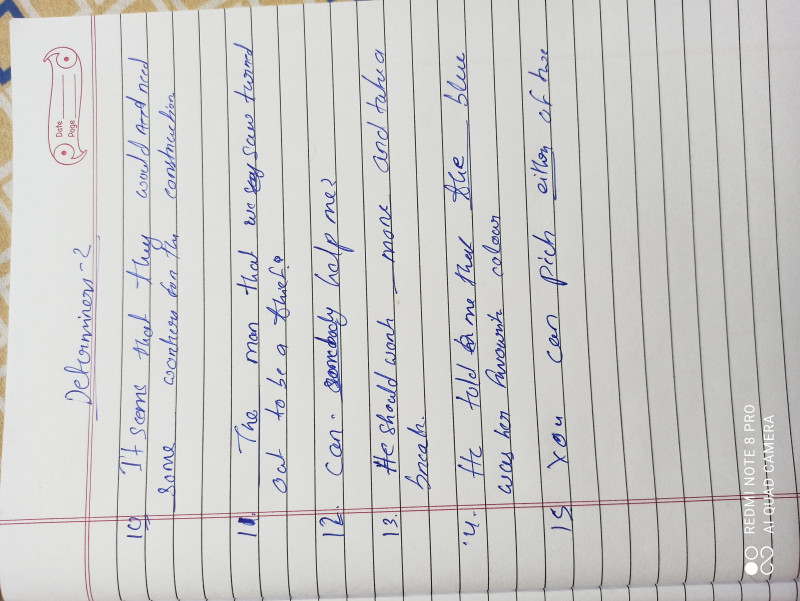 Date
Page
Determiners-2
10 It seems that they would need
some workers for the construction
11. The man that we saw turned
out to be a thief.
12. Can somebody help me?
13. He should work more and take a
break.
14. He told me that the blue
was her favourite colour
15 You can pick either of two
REDMI NOTE 8 PRO
AI QUAD CAMERA